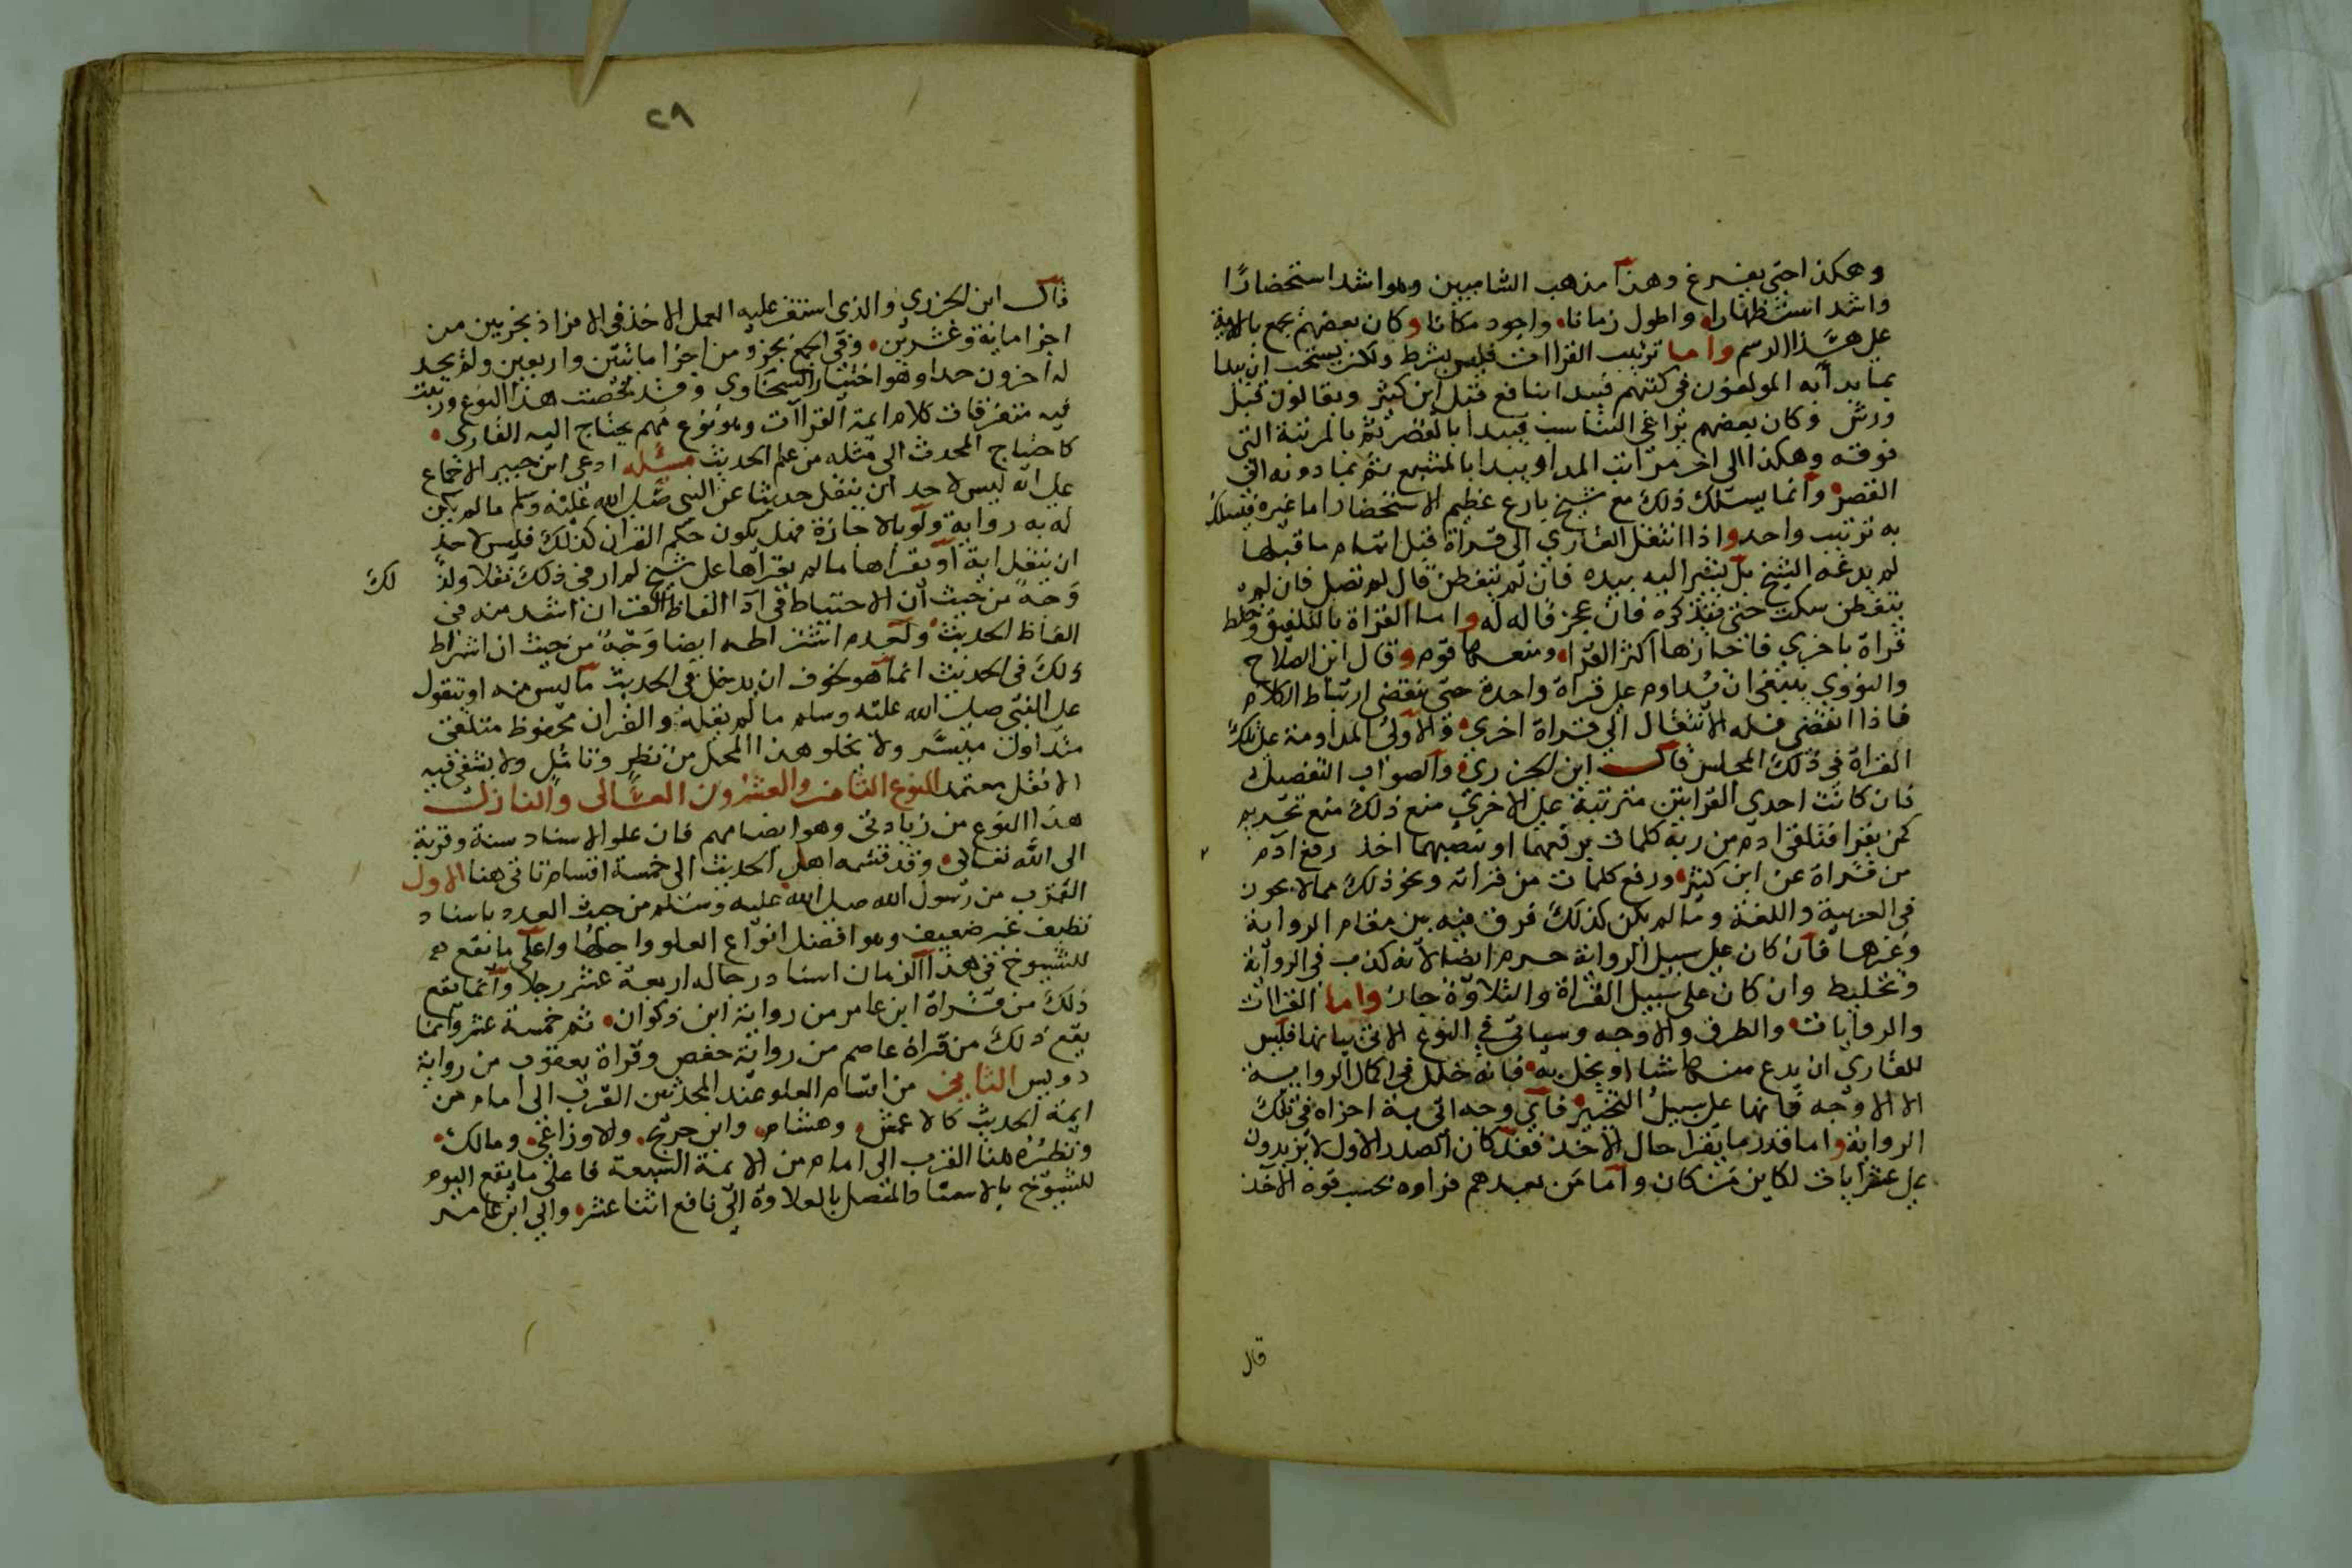 وهكذا حتى يفرغ وهذا مذهب الشاميين وهو اشد استحضارًا
واشد استظهارا واطول زمانا واجود مكانا وكان بعضهم يجمع بالاية
على هذا الرسم واما ترتيب القراات فليس بشرط ولكن يستحب ان يبدا
بما بدا به المولفون في كتبهم فيبدا بنافع قبل ابن كثير وبقالون قبل
ورش وكان بعضهم يراعي التناسب فيبدا بالقصر ثم بالمرتبة التي
فوقه وهكذا الى اخر مراتب المد او يبدا بالمشبع ثم بما دونه الى
القصر وانما يسلك ذلك مع شيخ بارع عظيم الاستحضار اما غيره فيسلك
به ترتيب واحد واذا انتقل القاري الى قراة قبل اتمام ما قبلها
لم يدعه الشيخ بل يشير اليه بيده فان لم يتفطن قال لم تصل فان لم
يتفطن سكت حتى يتذكره فان عجز قاله له واما القراة بالتلفيق وخلط
قراة باخرى فاجازها اكثر القرا ومنعها قوم وقال ابن الصلاح
والنووي ينبغي ان يداوم على قراة واحدة حتى ينقضي ارتباط الكلام
فاذا انقضى فله الانتقال الى قراة اخرى والاولى المداومة على تلك
القراة في ذلك المجلس قال ابن الجزري والصواب التفصيل
فان كانت احدى القرايتين مترتبة على الاخرى منع ذلك منع تحريم
كمن يقرا فتلقى ادم من ربه كلمات برفعهما او بنصبهما اخذ رفع آدم
من قراة عن ابن كثير ورفع كلمات من قراته ونحو ذلك مما لا يجوز
في العربية واللغة وما لم يكن كذلك فرق فيه بين مقام الرواية
وغيرها فان كان على سبيل الرواية حرم ايضا لانه كذب في الرواية
وتخليط وان كان على سبيل القراة والتلاوة جاز واما القراات
والروايات والطرق والاوجه وسياتي في النوع الاتي بيانها فليس
للقاري ان يدع منها شيا او يخل به فانه خلل في اكمال الرواية
الا الاوجه فانها على سبيل التخيير فاي وجه اتى به اجزاه في تلك
الرواية واما قدر ما يقرا حال الاخذ فقد كان الصدر الاول لا يزيدون
على عشر ايات لكاين من كان واما من بعدهم فراوه بحسب قوة الآخذ
قال
٢٩
قال ابن الجزري والذي استقر عليه العمل الاخذ في الافراد بجزء من
اجزا ماية وعشرين وفي الجمع بجزو من اجزا مايتين واربعين ولم يحد
له اخرون حدا وهو اختيار السخاوي وقد لخصت هذا النوع ورتبت
فيه متفرقات كلام ايمة القراات وهو نوع مهم يحتاج اليه القارى
كاحتياج المحدث الى مثله من علم الحديث مسئله ادعى ابن خير الاجماع
على انه ليس لاحد ان ينقل حديثا عن النبي صلى الله عليه وسلم ما لم يكن
له به رواية ولو بالاجازة فهل يكون حكم القران كذلك فليس لاحد
ان ينقل اية او يقراها ما لم يقراها على شيخ لم ار في ذلك نقلا ولذلك
وجه من حيث ان الاحتياط في ادا الفاظ القران اشد منه في
الفاظ الحديث ولعدم اشتراطه ايضا وجه من حيث ان اشتراط
ذلك في الحديث انما هو لخوف ان يدخل في الحديث ما ليس منه او يتقول
على النبي صلى الله عليه وسلم ما لم يقله والقران محفوظ متلقى
متداول متيسر ولا يخلو هذا المحل من نظر وتامل ولا يشفي فيه
الا نقل معتمد النوع الثامن والعشرون العالى والنازل
هذا النوع من زيادتي وهو ايضا مهم فان علو الاسناد سنة وقربة
الى الله تعالى وقد قسمه اهل الحديث الى خمسة اقسام تاتي هنا الاول
القرب من رسول الله صلى الله عليه وسلم من حيث العدد باسناد
نظيف غير ضعيف وهو افضل انواع العلو واجلها واعلى ما يقع
للشيوخ في هذا الزمان اسناد رجاله اربعة عشر رجلا وانما يقع
ذلك من قراة ابن عامر من رواية ابن ذكوان ثم خمسة عشر وانما
يقع ذلك من قراة عاصم من رواية حفص وقراة يعقوب من رواية
رويس الثاني من اقسام العلو عند المحدثين القرب الى امام من
ايمة الحديث كالاعمش وهشام وابن جريج والاوزاعي ومالك
ونظيره هنا القرب الى امام من الايمة السبعة فاعلى ما يقع اليوم
للشيوخ بالاسناد المتصل بالتلاوة الى نافع اثنا عشر والى ابن عامر